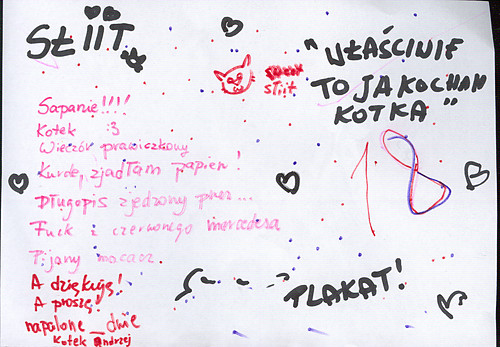 STIIT
"WŁAŚCINIE
TO JA KOCHAM
KOTKA"
stiit
18
Sapanie!!!!
Kotek :3
Wieczór prawiczkowy
Kurde, zjadłam papier!
Długopis zjedzony przez...
Fuck z czerwonego mercedesa
Pijany macacz.
A dziękuję!
A proszę!
napalone_dwie
Kotek andrzej
PLAKAT!